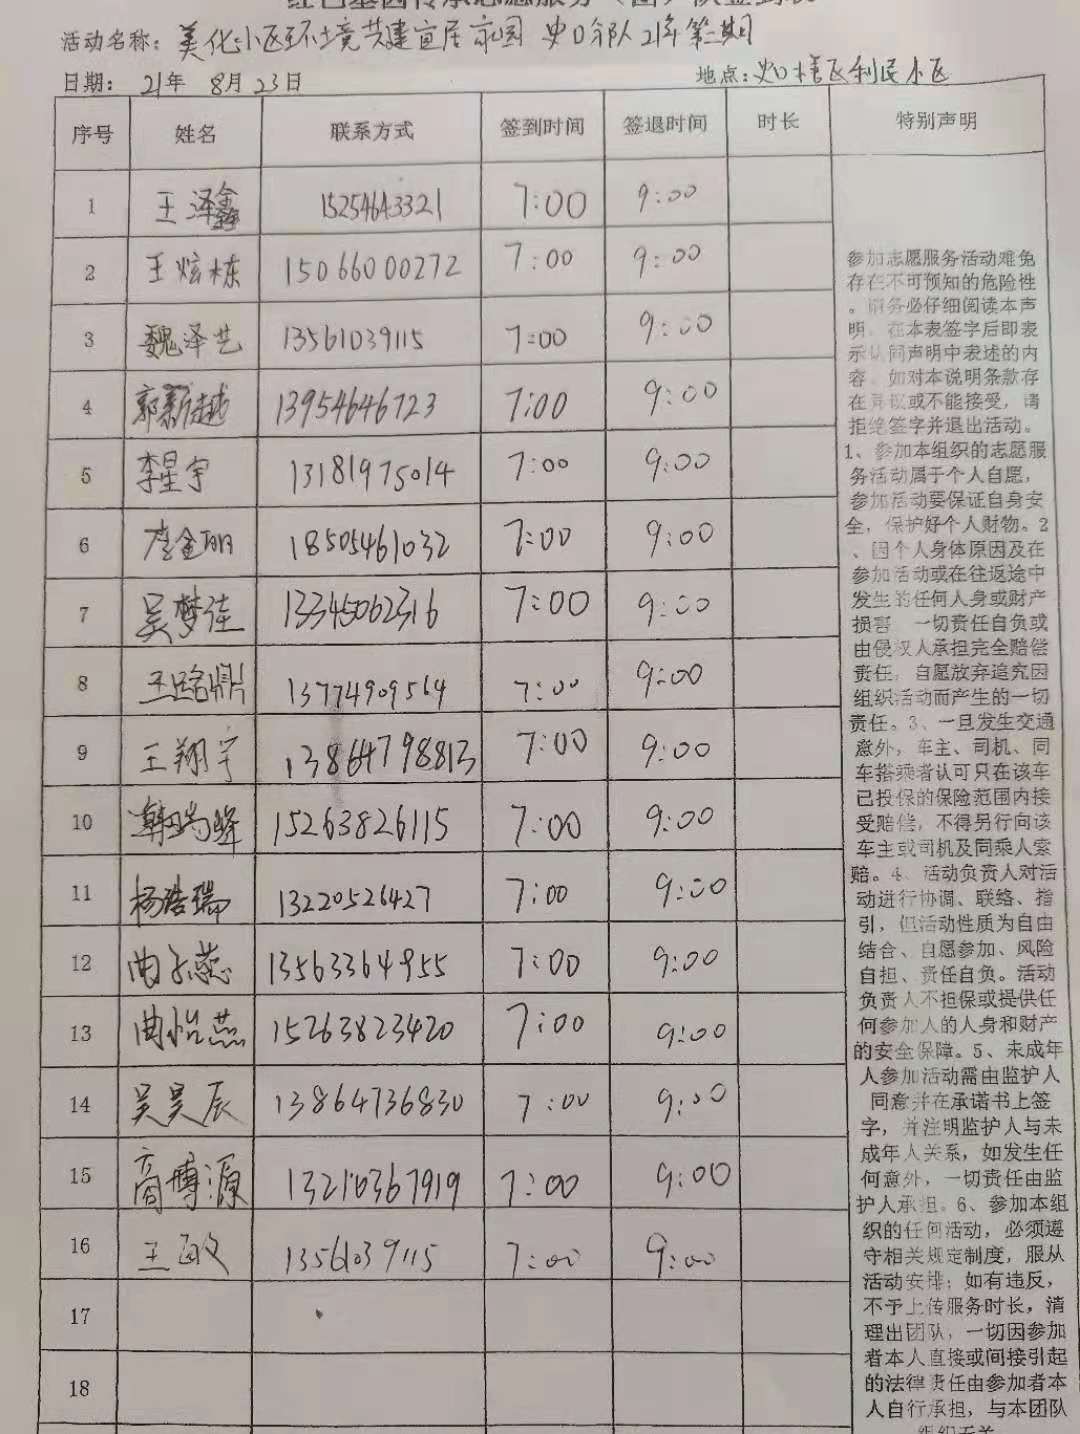 红色基因传承志愿服务
活动名称：美化小区环境共建宜居家园 史口分队21年第三期
日期：21年 8月23日
地点：史口镇区利民小区
序号 姓名 联系方式 签到时间 签退时间 时长 特别声明
1 王泽鑫 15254643321 7:00 9:00
2 王炫栋 15066000272 7:00 9:00
3 魏泽艺 13561039115 7:00 9:00
4 郭新越 13954646723 7:00 9:00
5 李星宇 13181975014 7:00 9:00
6 18505461032 7:00 9:00
7 吴梦佳 13345062316 7:00 9:00
8 13774909564 7:00 9:00
9 王翔宇 13864798813 7:00 9:00
10 韩瑞峰 15263826115 7:00 9:00
11 杨浩瑞 13220526427 7:00 9:00
12 曲子蕊 13563364955 7:00 9:00
13 曲怡燕 15263823420 7:00 9:00
14 吴昊辰 13864736830 7:00 9:00
15 商博源 13210367919 7:00 9:00
16 王政 13561039115 7:00 9:00
17
18
参加志愿服务活动难免
存在不可预知的危险性
，请务必仔细阅读本声
明，在本表签字后即表
示认同声明中表述的内
容。如对本说明条款存
在异议或不能接受，请
拒绝签字并退出活动。
1、参加本组织的志愿服
务活动属于个人自愿，
参加活动要保证自身安
全，保护好个人财物。2
、因个人身体原因及在
参加活动或在往返途中
发生的任何人身或财产
损害，一切责任自负或
由侵权人承担完全赔偿
责任，自愿放弃追究因
组织活动而产生的一切
责任。3、一旦发生交通
意外，车主、司机、同
车搭乘者认可只在该车
已投保的保险范围内接
受赔偿，不得另行向该
车主或司机及同乘人索
赔。4、活动负责人对活
动进行协调、联络、指
引，但活动性质为自由
结合、自愿参加、风险
自担、责任自负。活动
负责人不担保或提供任
何参加人的人身和财产
的安全保障。5、未成年
人参加活动需由监护人
同意并在承诺书上签
字，并注明监护人与未
成年人关系，如发生任
何意外，一切责任由监
护人承担。6、参加本组
织的任何活动，必须遵
守相关规定制度，服从
活动安排；如有违反，
不予上传服务时长，清
理出团队，一切因参加
者本人直接或间接引起
的法律责任由参加者本
人自行承担，与本团队
组织无关